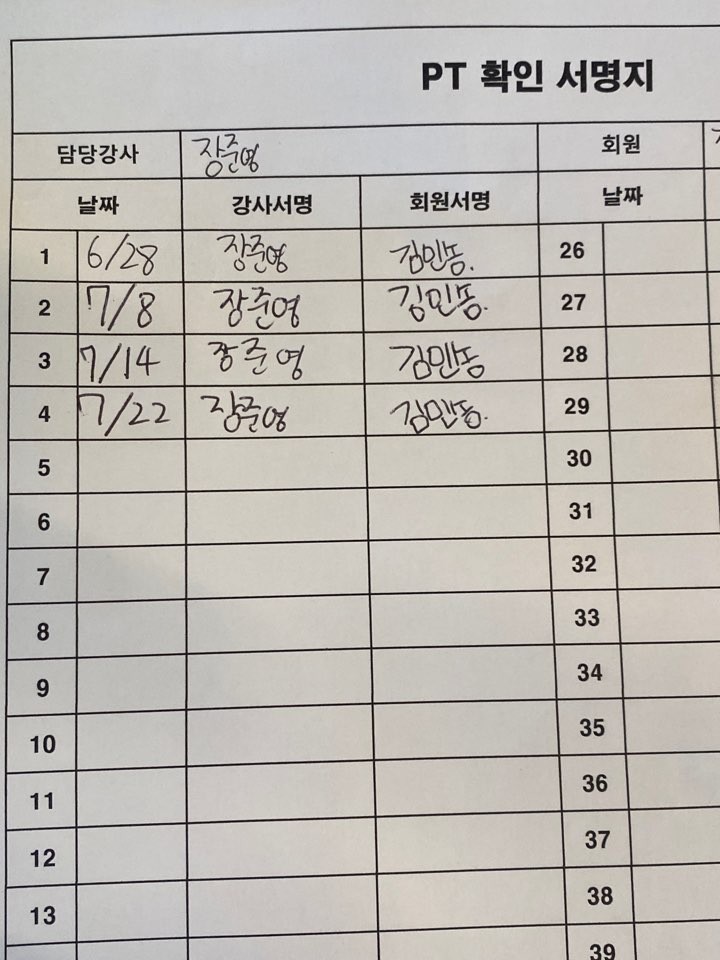 PT 확인 서명지
담당강사 장준영 회원
날짜 강사서명 회원서명 날짜
1 6/28 장준영 김민동. 26
2 7/8 장준영 김민동. 27
3 7/14 장준영 김민동 28
4 7/22 장준영 김민동. 29
5 30
6 31
7 32
8 33
9 34
10 35
11 36
12 37
13 38
39